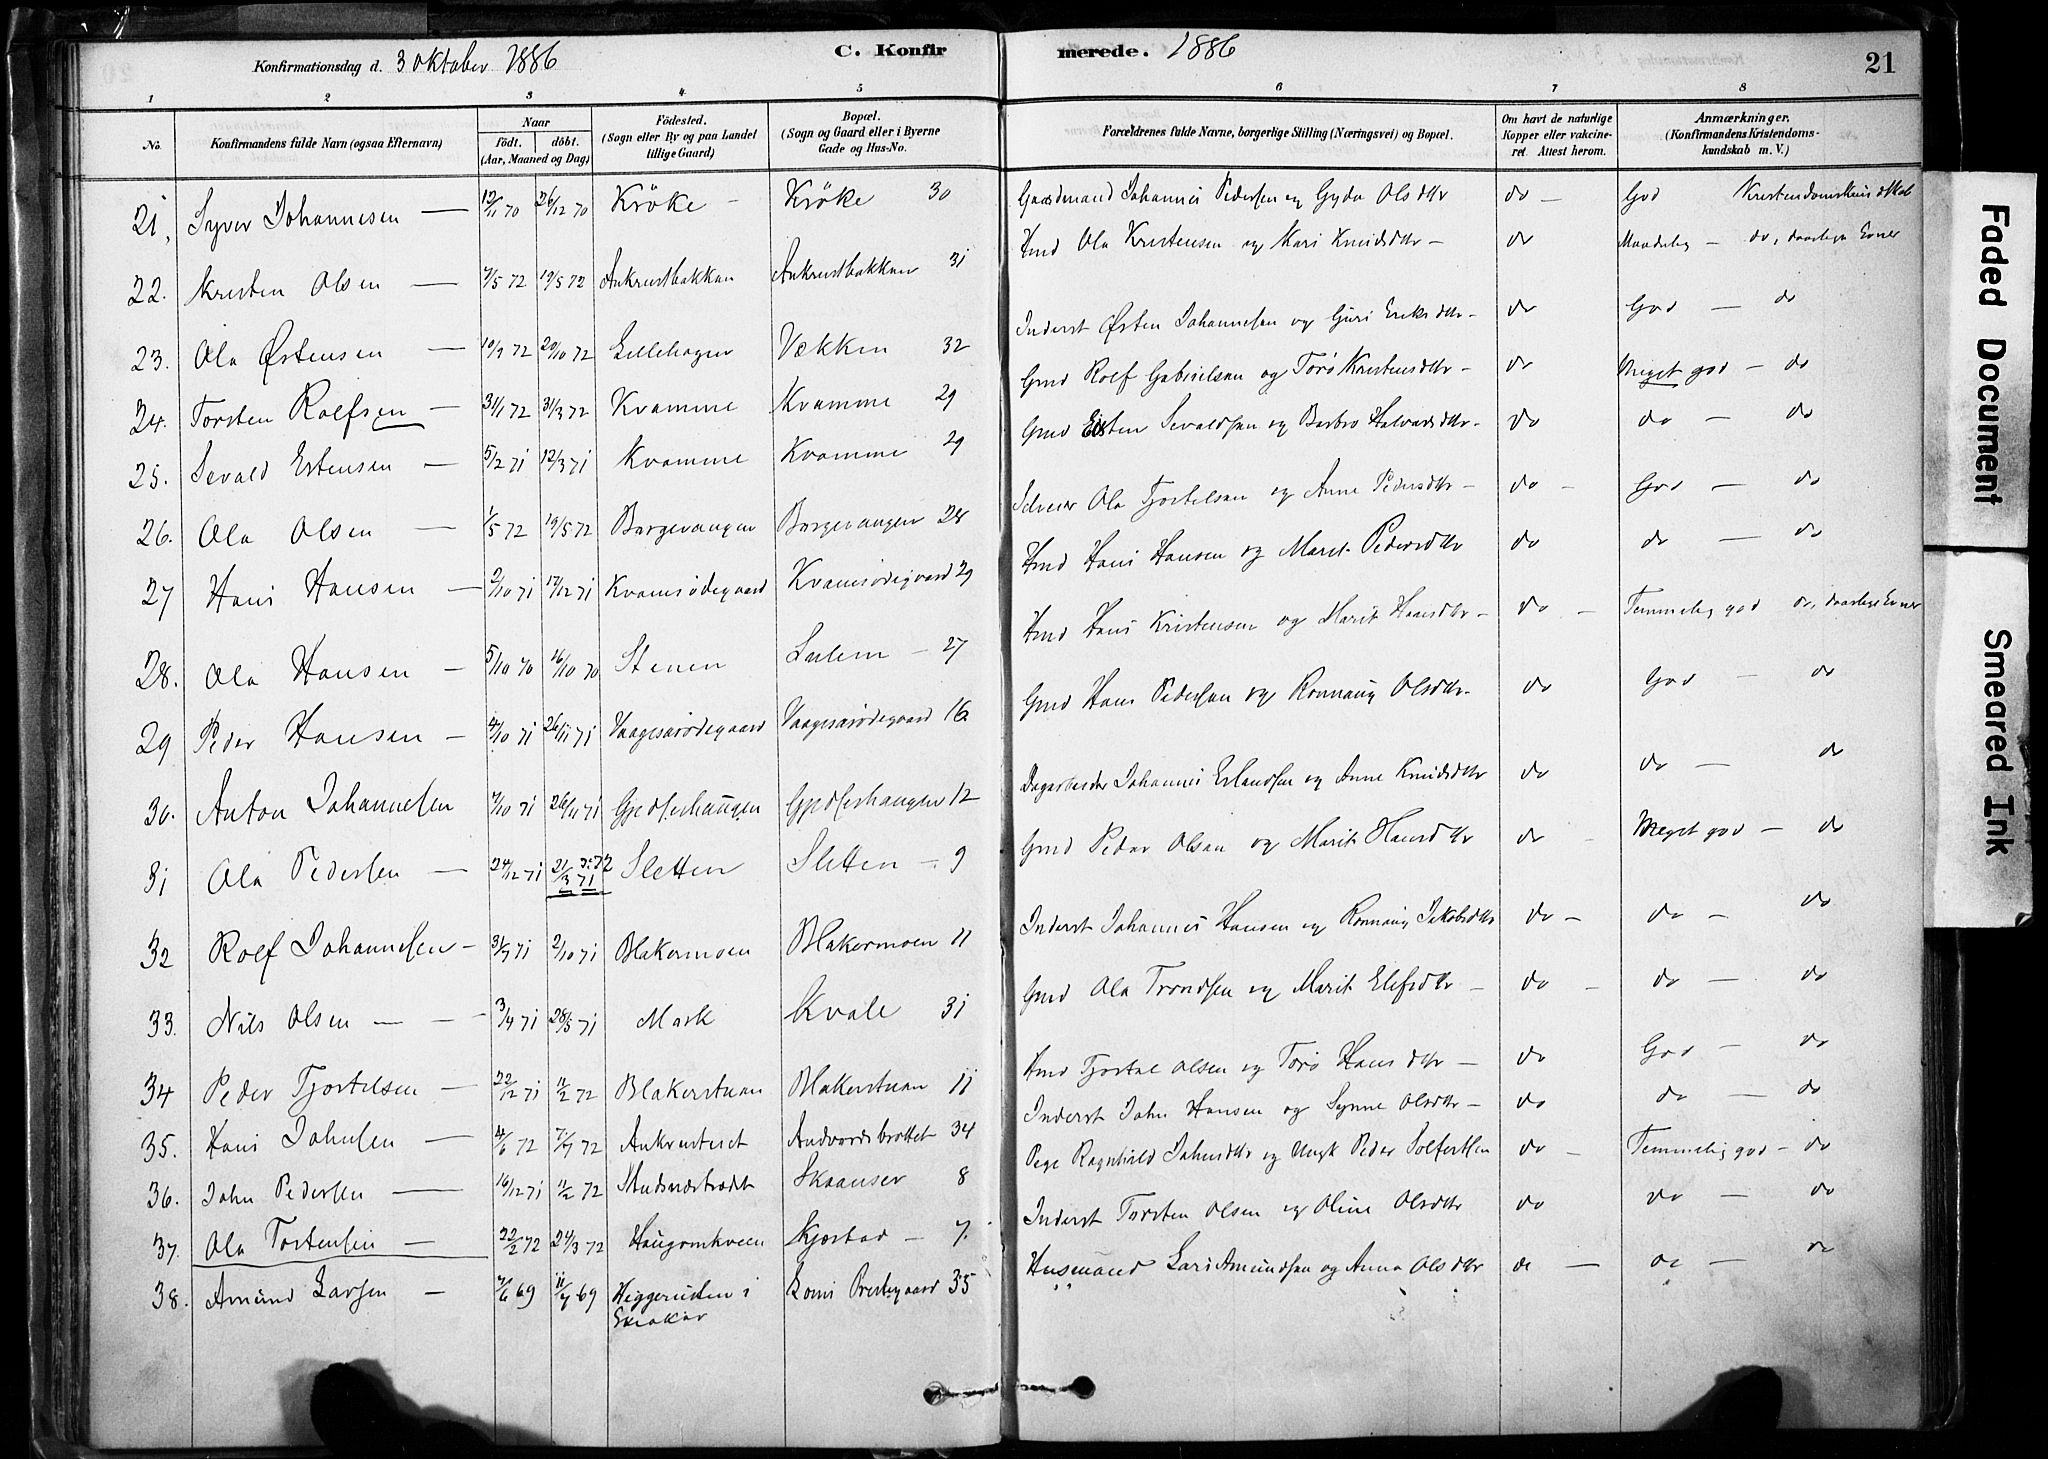 Konfirmationsdag d. 3 oktober 1886
C. Konfirmerede. 1886
21
1 2 3 4 5 6 7 8
No.
Konfirmandens fulde Navn (ogsaa Efternavn)
Naar
født. døbt.
(Aar, Maaned og Dag)
Fødested.
(Sogn eller By og paa Landet
tillige Gaard)
Bopæl.
(Sogn og Gaard eller i Byerne
Gade og Hus-No.
Forældrenes fulde Navne, borgerlige Stilling (Næringsvei) og Bopæl.
Om havt de naturlige
Kopper eller vakcine-
ret. Attest herom.
Anmærkninger.
(Konfirmandens Kristendoms-
kundskab m. V.)
21, Syver Johannesen — 12/11 70 26/12 70 Kröke - Kröke 30 Gaardmand Johannes Pedersen og Gyda Olsdtr do - God Kristendomskundskab
22. Kristen Olsen — 7/5 72 19/5 72 Ankrustbakken Ankrustbakken 31 Hmd Ola Kristensen og Mari Knudsdtr - do Maadelig - do, daarlige Evner
23. Ola Østensen — 19/9 72 20/10 72 Lillehagen Vækken 32 Inderst Østen Johannesen og Guri Eriksdtr - do God - do
24. Torsten Rolfsen — 31/1 72 31/3 72 Kvamme Kvamme 29 Gmd Rolf Gabrielsen og Torø Kristensdtr - do Meget god - do
25. Sevald Estensen — 5/2 71 12/3 71 Kvamme Kvamme 29 Gmd Esten Sevaldsen og Barbro Halvardsdtr - do do - do
26. Ola Olsen — 1/5 72 19/5 72 Borgevangen Borgevangen 28 Selveier Ola Tjostelsen og Anne Pedersdtr - do - God - do
27 Hans Hansen — 2/10 71 17/12 71 Kvamsødegaard Kvamsødegaard 29 Hmd Hans Hansen og Marit Pedersdtr do do - do
28. Ola Hansen — 5/10 70 16/10 70 Stenen Sulem - 27 Hmd Hans Kristensen og Marit Hansdtr - do - Temmelig god do, daarlige Evner
29 Peder Hansen — 4/10 71 26/11 71 Vaagesarødegaard Vaagesarødegaard 16 Gmd Hans Pedersen og Ronnaug Olsdtr - do God - do
30. Anton Johannesen 7/10 71 26/11 71 Gjedserhaugen Gjedserhaugen 12 Dagarbeider Johannes Erlandsen og Anne Knudsdtr do do - do
31 Ola Pedersen — 24/12 71 21/3 71 3: 72 Sletten Sletten - 9 Gmd Peder Olsen og Marit Hansdtr do - Meget god - do
32 Rolf Johannesen - 31/7 71 2/10 71 Blakermoen Blakermoen 11 Inderst Johannes Hansen og Ronnaug Jakobsdtr do - do - do
33. Nils Olsen — - 3/4 71 28/5 71 Mark Kvale 31 Gmd Ola Trondsen og Marit Elefsdtr - do - do - do
34 Peder Tjostelsen — 22/12 71 11/2 72 Blakerstuen Blakerstuen 11 Hmd Tjostel Olsen og Torø Hansdtr - do God - do
35. Hans Johnsen — 4/6 72 7/7 72 Ankrusteiet Andvordsbrottet 34 Inderst John Hansen og Synne Olsdtr - do do - do
36. John Pedersen — 16/12 71 11/2 72 Skaanser 8 Pige Ragnhild Johnsdtr og Ungk Peder do - Temmelig god - do
37. Ola Tostensen — 22/2 72 24/3 72 Haugomkveen Kjøstad - 7. Inderst Torsten Olsen og Oline Olsdtr do do - do
38. Amund Larsen - 7/6 69 11/7 69 Heggerusten i Lomi Prestegaard 35 Husmand Lars Amundsen og Anna Olsdtr do - do - do